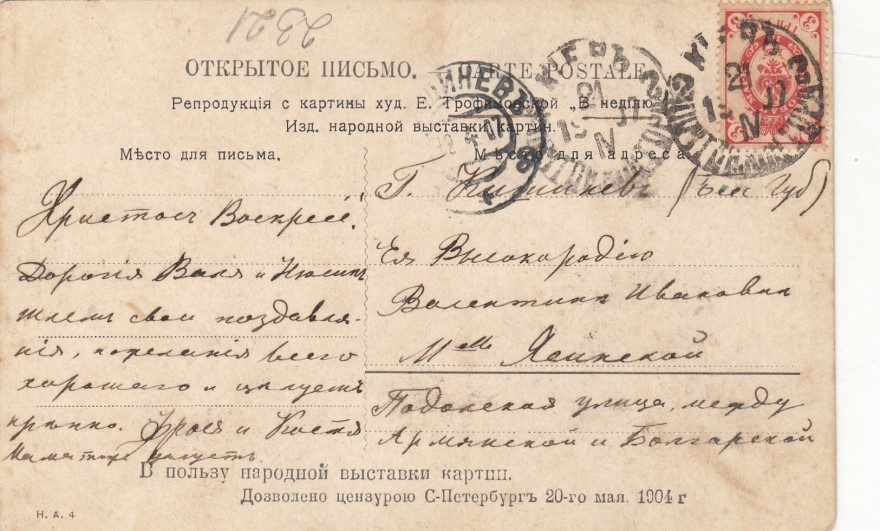 2321
ОТКРЫТОЕ ПИСЬМО. CARTE POSTALE
Репродукція с картины худ. Е. Трофимовской „В неділю"
Изд. народной выставки картин.
Мѣсто для письма.
Христосъ Воскресе!
Дорогія Валя и Нюсинъ
шлемъ свои поздравле-
нія, пожеланія всего
хорошаго и цѣлуемъ
крѣпко. Фрося и Костя
Мама тоже цѣлуетъ.
Мѣсто для адреса
Г. Кишиневъ (Бес. Губ)
Ея Высокородію
Валентинѣ Ивановнѣ
Mme Ясинской
Подольская улица, между
Армянской и Болгарской
КІЕВЪ
21
IV
КІЕВЪ
21
IV
В пользу народной выставки картин.
Дозволено цензурою С-Петербургъ 20-го мая. 1904 г
Н. А. 4